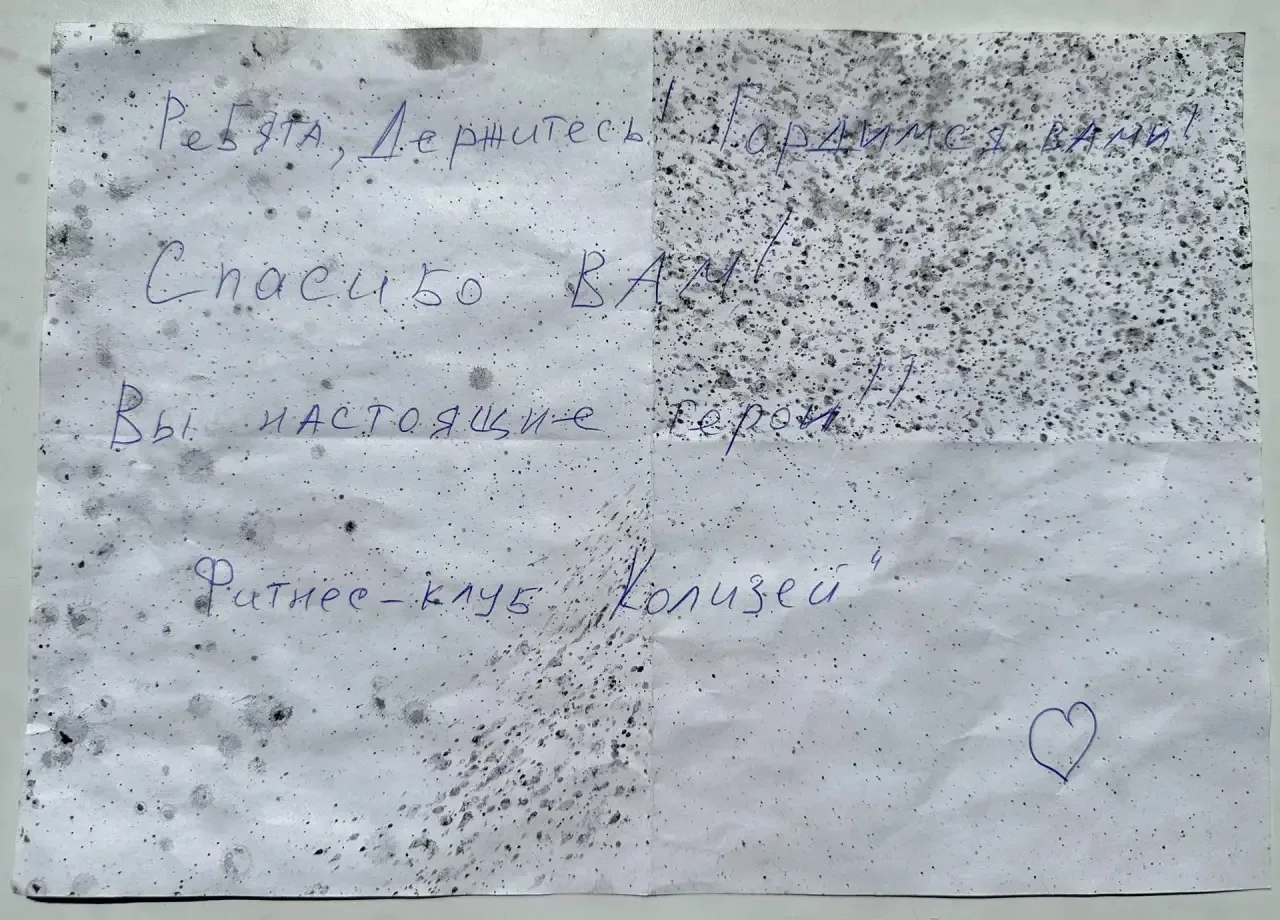 Ребята, Держитесь! Гордимся вами!
Спасибо ВАМ!
Вы настоящие герои!!
Фитнес-клуб Колизей"